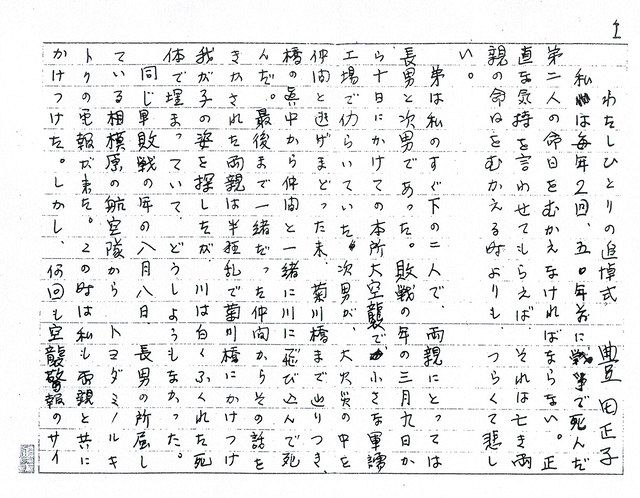 1
わたしひとりの追悼式　豊田正子
私は毎年2回、五〇年前に戦争で死んだ
弟二人の命日をむかえなければならない。正
直な気持を言わせてもらえば それは亡き両
親の命日をむかえる時よりも つらくて悲し
い。
弟は私のすぐ下の二人で 両親にとっては
長男と次男であった。敗戦の年の三月九日か
ら十日にかけての本所大空襲で 小さな軍需
工場で仂らいていた次男が、大火災の中を
仲間と逃げまどった末 菊川橋まで辿りつき、
橋の真中から仲間と一緒に川に飛び込んで死
んだ。最後まで一緒だった仲間からその話を
きかされた両親は半狂乱で菊川橋にかけつけ
我が子の姿を探したが 川は白くふくれた死
体で埋まっていて、どうしようもなかった。
同じ敗戦の年の八月八日、長男の所属し
ている相模原の航空隊から トヨダミノルキ
トクの電報が来た。この時は私も両親と共に
かけつけた。しかし、何回も空襲警報のサイ